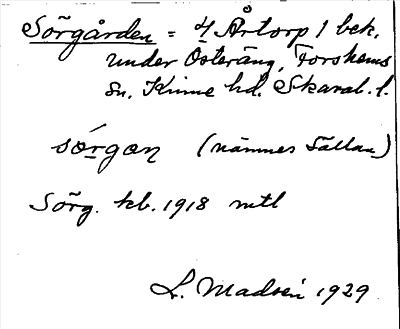 Sörgården = 4 Årtorp 1 bek.
under Osteräng, Forshems
sn. Kinne hd. Skarab. l.
sǫ́rgan (nämnes sällan)
Sörg. kb. 1918 mtl
L. Madsén 1929